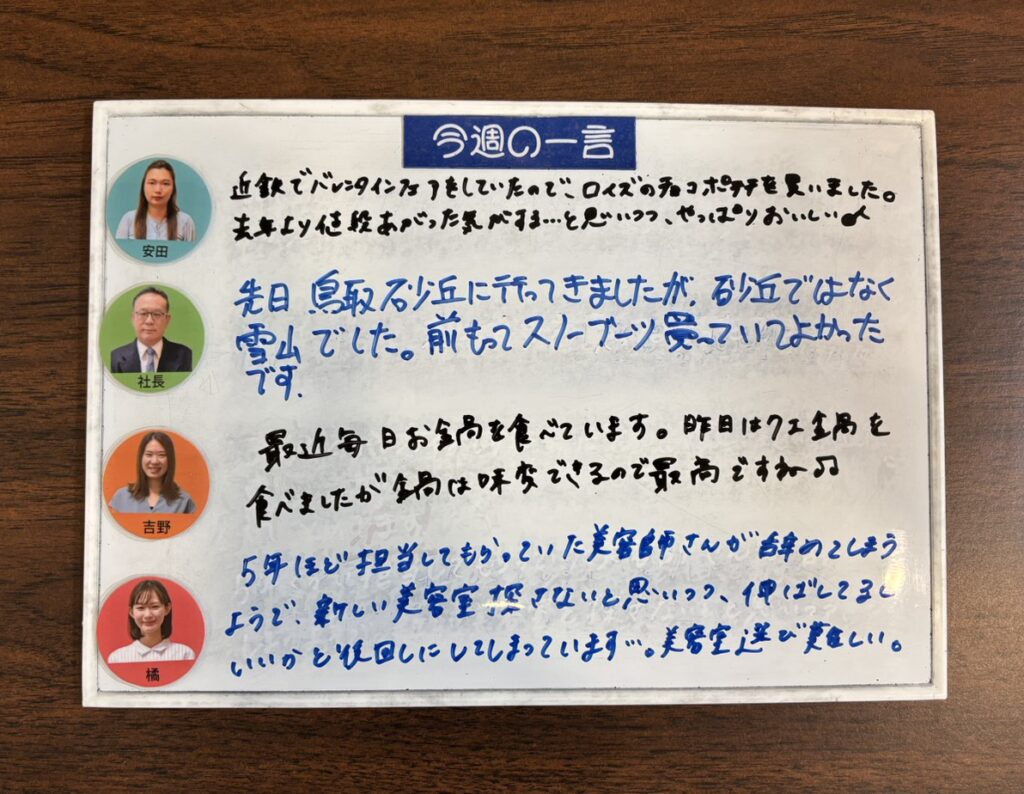 今週の一言
近鉄でバレンタインフェアをしていたので、ロイズのチョコポテチを買いました。
去年より値段あがった気がする…と思いつつ、やっぱりおいしい♪
安田
先日 鳥取砂丘に行ってきましたが、砂丘ではなく
雪山でした。前もってスノーブーツ買っていてよかった
です.
社長
最近毎日お鍋を食べています。昨日はクエ鍋を
食べましたが鍋は味変できるので最高ですね♫
吉野
5年ほど担当してもらっていた美容師さんが辞めてしまう
ようで、新しい美容室探さないと思いつつ、伸ばしてるし
いいかと後回しにしてしまっています…。美容室選び難しい。
橘